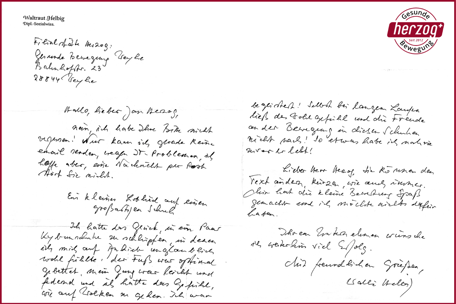 Waltraut Helbig
Dipl.-Sozialwiss.
Filialleitung Herzog:
Gesunde Bewegung Weyhe
Bahnhofstr. 23
28844 Weyhe
Hallo, lieber Jan Herzog,
nein, ich habe Ihre Bitte nicht
vergessen! Nur kann ich gerade keine
email senden, wegen IT-Problemen, ich
hoffe aber, eine Nachricht per Post
stört Sie nicht.
Ein kleines Loblied auf einen
großartigen Schuh
Ich hatte das Glück, in ein Paar
Kybunschuhe zu schlüpfen, in denen
ich mich auf Anhieb unglaublich
wohl fühlte. Der Fuß war optimal
gebettet, mein Gang war leicht und
federnd und ich hatte das Gefühl,
wie auf Wolken zu gehen. Ich war
begeistert! Selbst bei langem Laufen
ließ das Wohlgefühl und die Freude
an der Bewegung in diesen Schuhen
nicht nach! So etwas habe ich noch nie
zuvor erlebt!
Lieber Herr Herzog, Sie können den
Text ändern, kürzen, wie auch immer.
Mir hat die kleine Bemühung Spaß
gemacht und ich möchte nichts dafür
haben.
Ihrem Unternehmen wünsche
ich weiterhin viel Erfolg.
Mit freundlichen Grüßen,
Gesunde
herzog
seit 2012
Bewegung